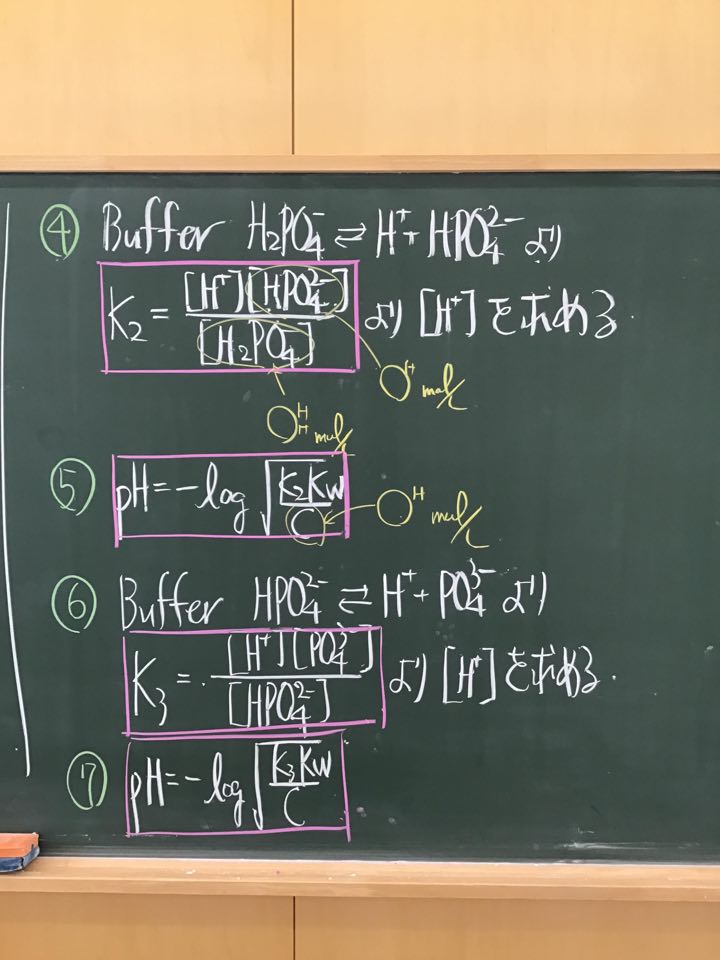 ④ Buffer H₂PO₄⁻ ⇄ H⁺+ HPO₄²⁻ より
K₂ = [H⁺][HPO₄²⁻] / [H₂PO₄⁻] より [H⁺] を求める.
○ᴴ mol/L
○ᴴ_H mol/L
⑤ pH = -log √(K₂Kw / C) ○ᴴ mol/L
⑥ Buffer HPO₄²⁻ ⇄ H⁺+ PO₄³⁻ より
K₃ = [H⁺][PO₄³⁻] / [HPO₄²⁻] より [H⁺] を求める.
⑦ pH = -log √(K₃Kw / C)